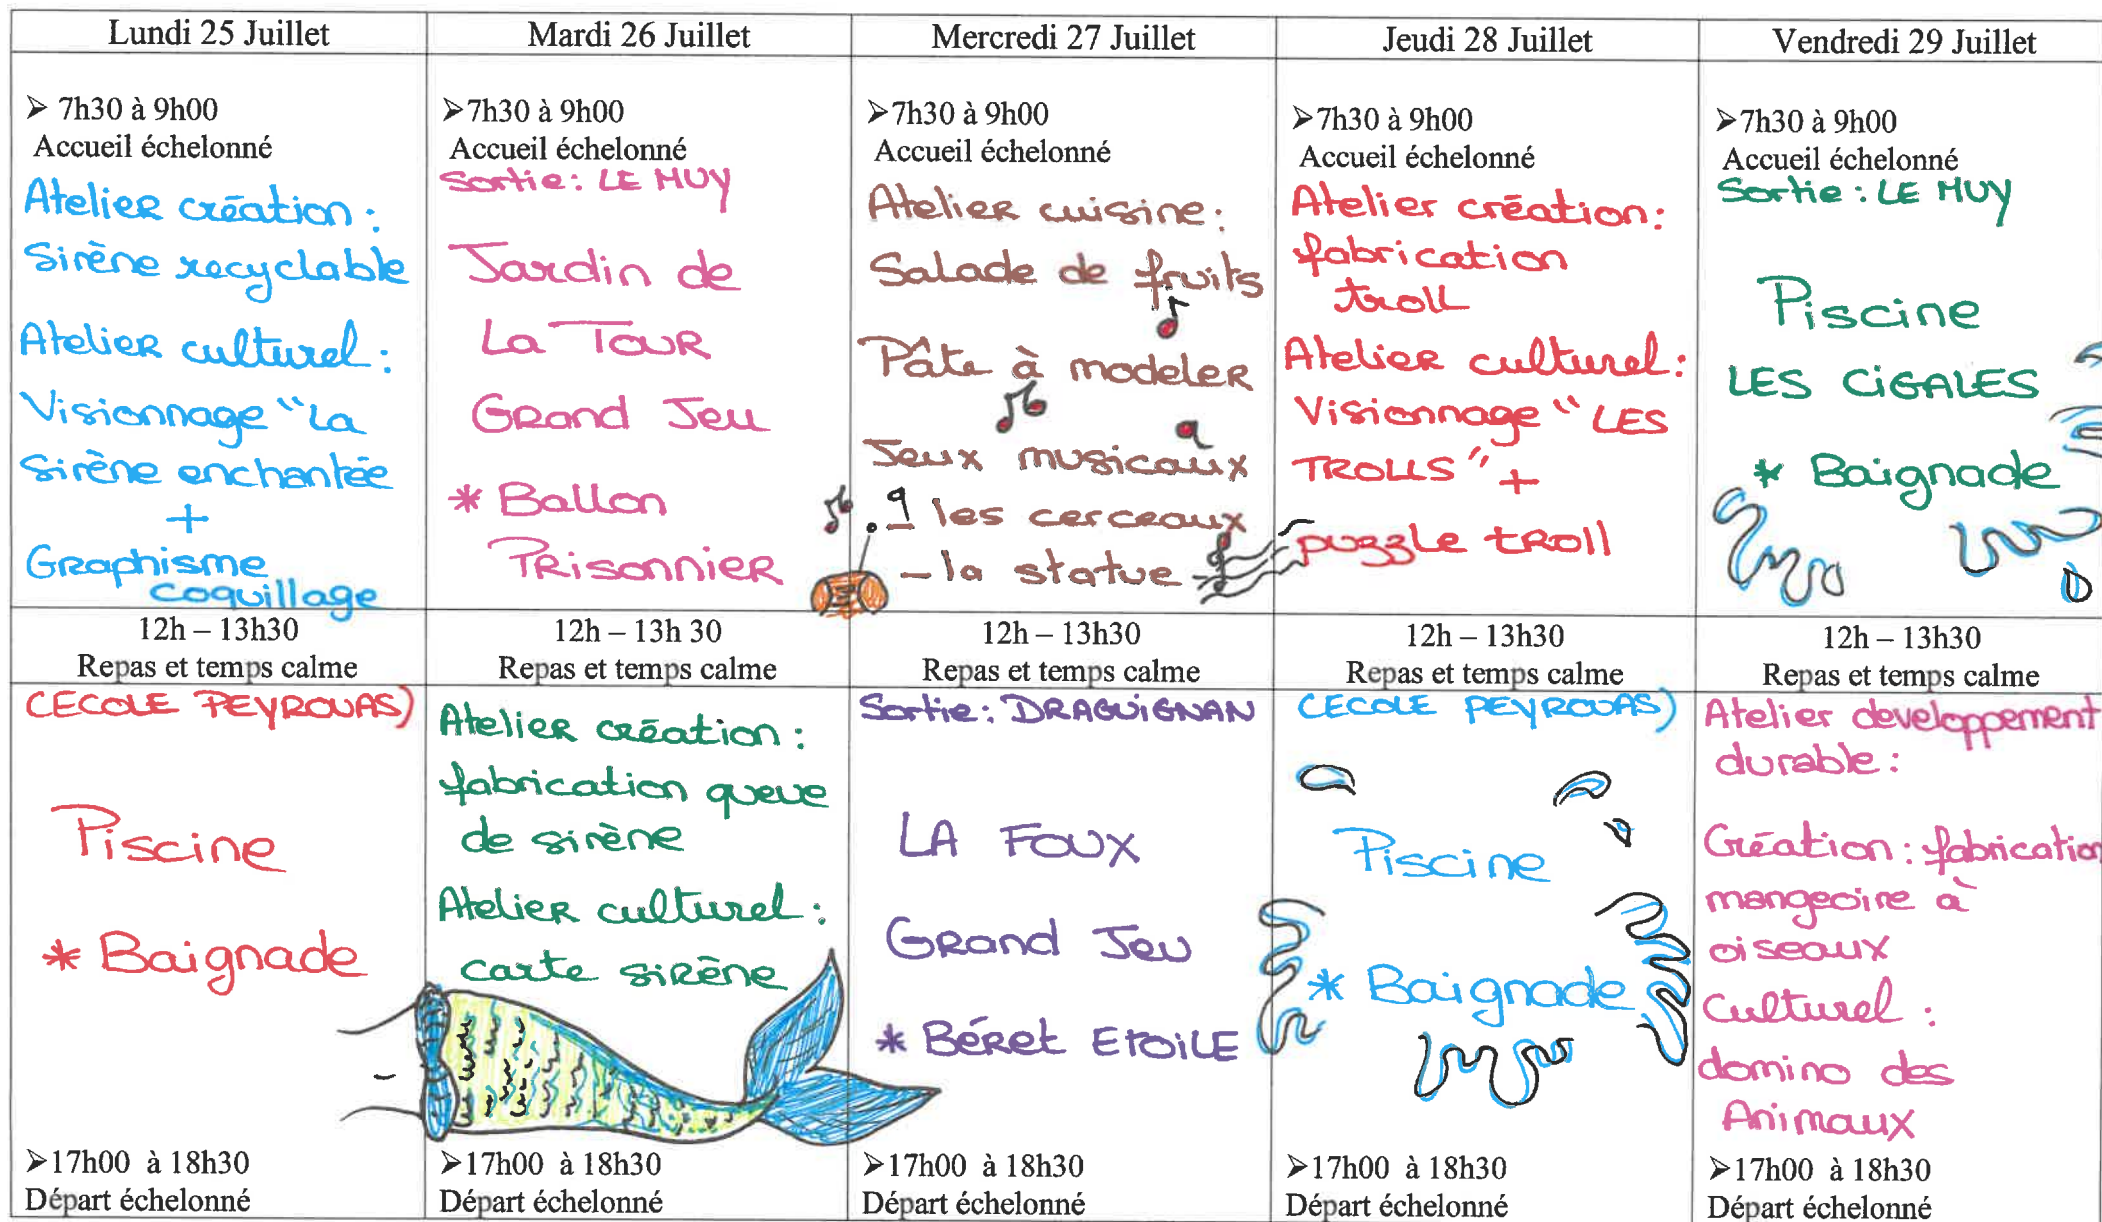 Lundi 25 Juillet
Mardi 26 Juillet
Mercredi 27 Juillet
Jeudi 28 Juillet
Vendredi 29 Juillet
➢ 7h30 à 9h00
Accueil échelonné
Atelier création :
Sirène recyclable
Atelier culturel :
Visionnage "La
Sirène enchantée
+
Graphisme
coquillage
➢7h30 à 9h00
Accueil échelonné
Sortie : LE MUY
Jardin de
La Tour
Grand Jeu
* Ballon
Prisonnier
➢7h30 à 9h00
Accueil échelonné
Atelier cuisine :
Salade de fruits
Pâte à modeler
Jeux musicaux
les cerceaux
- la statue
➢7h30 à 9h00
Accueil échelonné
Atelier création :
fabrication
troll
Atelier culturel :
Visionnage "LES
TROLLS" +
puzzle troll
➢7h30 à 9h00
Accueil échelonné
Sortie : LE MUY
Piscine
LES CIGALES
* Baignade
12h – 13h30
Repas et temps calme
12h – 13h 30
Repas et temps calme
12h – 13h30
Repas et temps calme
12h – 13h30
Repas et temps calme
12h – 13h30
Repas et temps calme
(ECOLE PEYROUAS)
Piscine
* Baignade
➢17h00 à 18h30
Départ échelonné
Atelier création :
fabrication queue
de sirène
Atelier culturel :
carte sirène
➢17h00 à 18h30
Départ échelonné
Sortie : DRAGUIGNAN
LA FOUX
Grand Jeu
* Béret ETOILE
➢17h00 à 18h30
Départ échelonné
(ECOLE PEYROUAS)
Piscine
* Baignade
➢17h00 à 18h30
Départ échelonné
Atelier developpement
durable :
Création : fabrication
mangeoire à
oiseaux
Culturel :
domino des
Animaux
➢17h00 à 18h30
Départ échelonné